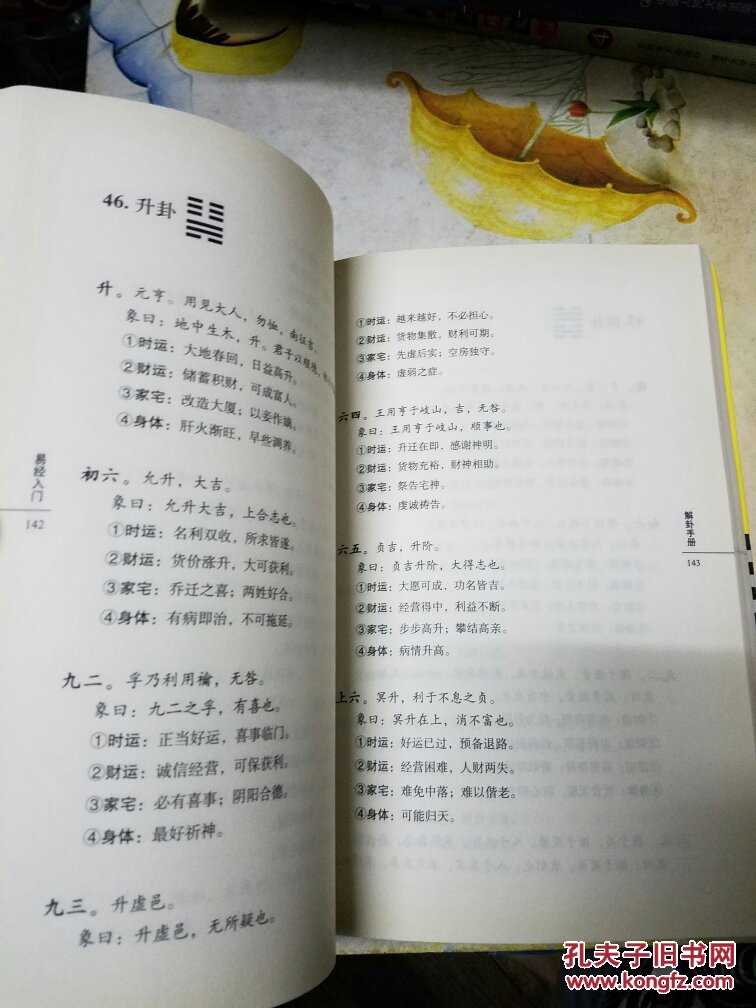 46. 升卦
升。元亨。用见大人，勿恤，南征吉。
象曰：地中生木，升。君子以顺德，
①时运：大地春回，日益高升。
②财运：储蓄积财，可成富人。
③家宅：改造大厦；以妾作嫡。
④身体：肝火渐旺，早些调养。
初六。允升，大吉。
象曰：允升大吉，上合志也。
①时运：名利双收，所求皆遂。
②财运：货价涨升，大可获利。
③家宅：乔迁之喜；两姓好合。
④身体：有病即治，不可拖延。
九二。孚乃利用禴，无咎。
象曰：九二之孚，有喜也。
①时运：正当好运，喜事临门。
②财运：诚信经营，可保获利。
③家宅：必有喜事；阴阳合德。
④身体：最好祈神。
九三。升虚邑。
象曰：升虚邑，无所疑也。
易经入门
142
①时运：越来越好，不必担心。
②财运：货物集散，财利可期。
③家宅：先虚后实；空房独守。
④身体：虚弱之症。
六四。王用亨于岐山，吉，无咎。
象曰：王用亨于岐山，顺事也。
①时运：升迁在即，感谢神明。
②财运：货物充裕，财神相助。
③家宅：祭告宅神。
④身体：虔诚祷告。
六五。贞吉，升阶。
象曰：贞吉升阶，大得志也。
①时运：大愿可成，功名皆吉。
②财运：经营得中，利益不断。
③家宅：步步高升；攀结高亲。
④身体：病情升高。
上六。冥升，利于不息之贞。
象曰：冥升在上，消不富也。
①时运：好运已过，预备退路。
②财运：经营困难，人财两失。
③家宅：难免中落；难以偕老。
④身体：可能归天。
解卦手册
143
孔夫子旧书网
www.kongfz.com